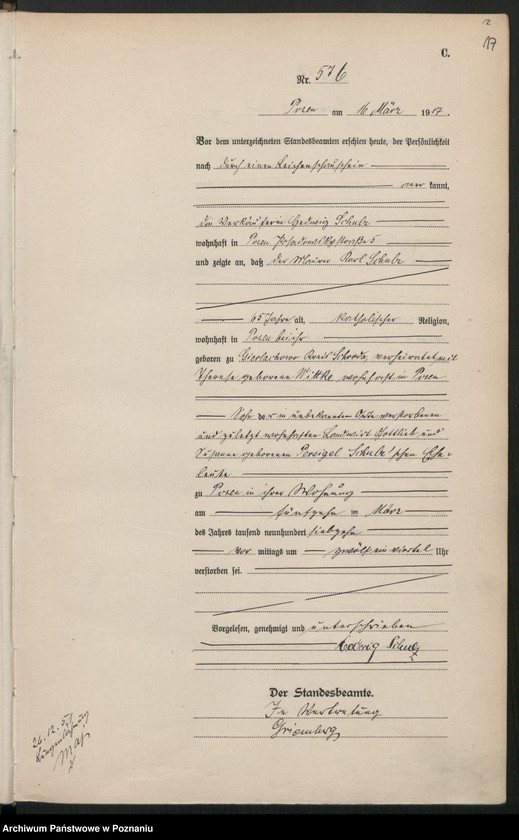 12
17
C.
Nr. 576
Posen am 16 März 1917.
Vor dem unterzeichneten Standesbeamten erschien heute, der Persönlichkeit
nach durch einen Leichenschauschein
anerkannt,
die Verkäuferin Hedwig Schulz
wohnhaft in Posen, Posadowskystraße 5
und zeigte an, daß der Maurer Karl Schulz
65 Jahre alt, katholischer Religion,
wohnhaft in Posen bei ihr
geboren zu Kreis Schroda, verheiratet mit
Therese geborenen Wittke wohnhaft in Posen
Sohn der in unbekanntem Orte verstorbenen
und zuletzt wohnhaften Landwirt Gottlieb und
Susanne geborenen Schulz'schen Ehe-
leute
zu Posen in ihrer Wohnung
am fünfzehn ten März
des Jahres tausend neunhundert siebzehn
Vor mittags um zwölf ein viertel Uhr
verstorben sei.
Vorgelesen, genehmigt und unterschrieben
Hedwig Schulz
Der Standesbeamte.
In Vertretung
26.12.51
Archiwum Państwowe w Poznaniu